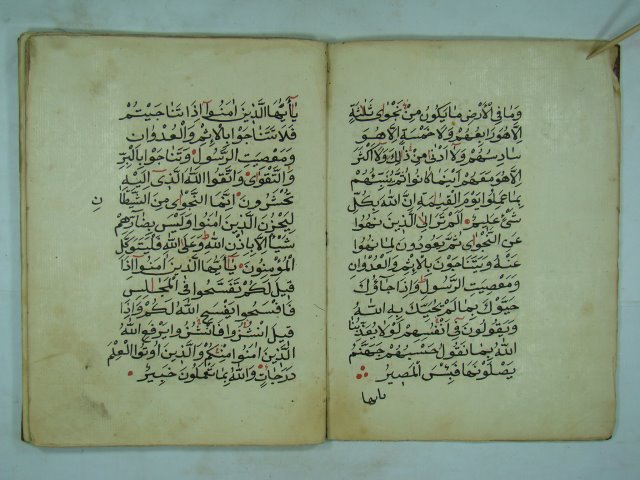 وَمَا فِي الْأَرْضِ مَا يَكُونُ مِنْ نَجْوَى ثَلَثَةٍ
اِلَّا هُوَ رَابِعُهُمْ وَلَا خَمْسَةٍ اِلَّا هُوَ
سَادِسُهُمْ وَلَا اَدْنَى مِنْ ذَلِكَ وَلَا اَكْثَرَ
اِلَّا هُوَ مَعَهُمْ اَيْنَمَا كَانُوا ثُمَّ يُنَبِّئُهُمْ
بِمَا عَمِلُوا يَوْمَ الْقِيٰمَةِ اِنَّ اللهَ بِكُلِّ
شَيْءٍ عَلِيمٌ اَلَمْ تَرَ اِلَى الَّذِينَ نُهُوا
عَنِ النَّجْوٰى ثُمَّ يَعُودُونَ لِمَا نُهُوا
عَنْهُ وَيَتَنَاجَوْنَ بِالْاِثْمِ وَالْعُدْوَانِ
وَمَعْصِيَتِ الرَّسُولِ وَاِذَا جَاؤُكَ
حَيَّوْكَ بِمَا لَمْ يُحَيِّكَ بِهِ اللهُ
وَيَقُولُونَ فِي اَنْفُسِهِمْ لَوْلَا يُعَذِّبُنَا
اللهُ بِمَا نَقُولُ حَسْبُهُمْ جَهَنَّمُ
يَصْلَوْنَهَا فَبِئْسَ الْمَصِيرُ
ياايها
يَا اَيُّهَا الَّذِينَ اٰمَنُوا اِذَا تَنَاجَيْتُمْ
فَلَا تَتَنَاجَوْا بِالْاِثْمِ وَالْعُدْوَانِ
وَمَعْصِيَتِ الرَّسُولِ وَتَنَاجَوْا بِالْبِرِّ
وَالتَّقْوٰى وَاتَّقُوا اللهَ الَّذِي اِلَيْهِ
تُحْشَرُونَ اِنَّمَا النَّجْوٰى مِنَ الشَّيْطَا
نِ
لِيَحْزُنَ الَّذِينَ اٰمَنُوا وَلَيْسَ بِضَارِّهِمْ
شَيْئًا اِلَّا بِاِذْنِ اللهِ وَعَلَى اللهِ فَلْيَتَوَكَّلِ
الْمُؤْمِنُونَ يَا اَيُّهَا الَّذِينَ اٰمَنُوا اِذَا
قِيلَ لَكُمْ تَفَسَّحُوا فِي الْمَجٰلِسِ
فَافْسَحُوا يَفْسَحِ اللهُ لَكُمْ وَاِذَا
قِيلَ انْشُزُوا فَانْشُزُوا يَرْفَعِ اللهُ
الَّذِينَ اٰمَنُوا مِنْكُمْ وَالَّذِينَ اُوتُوا الْعِلْمَ
دَرَجَاتٍ وَاللهُ بِمَا تَعْمَلُونَ خَبِيرٌ